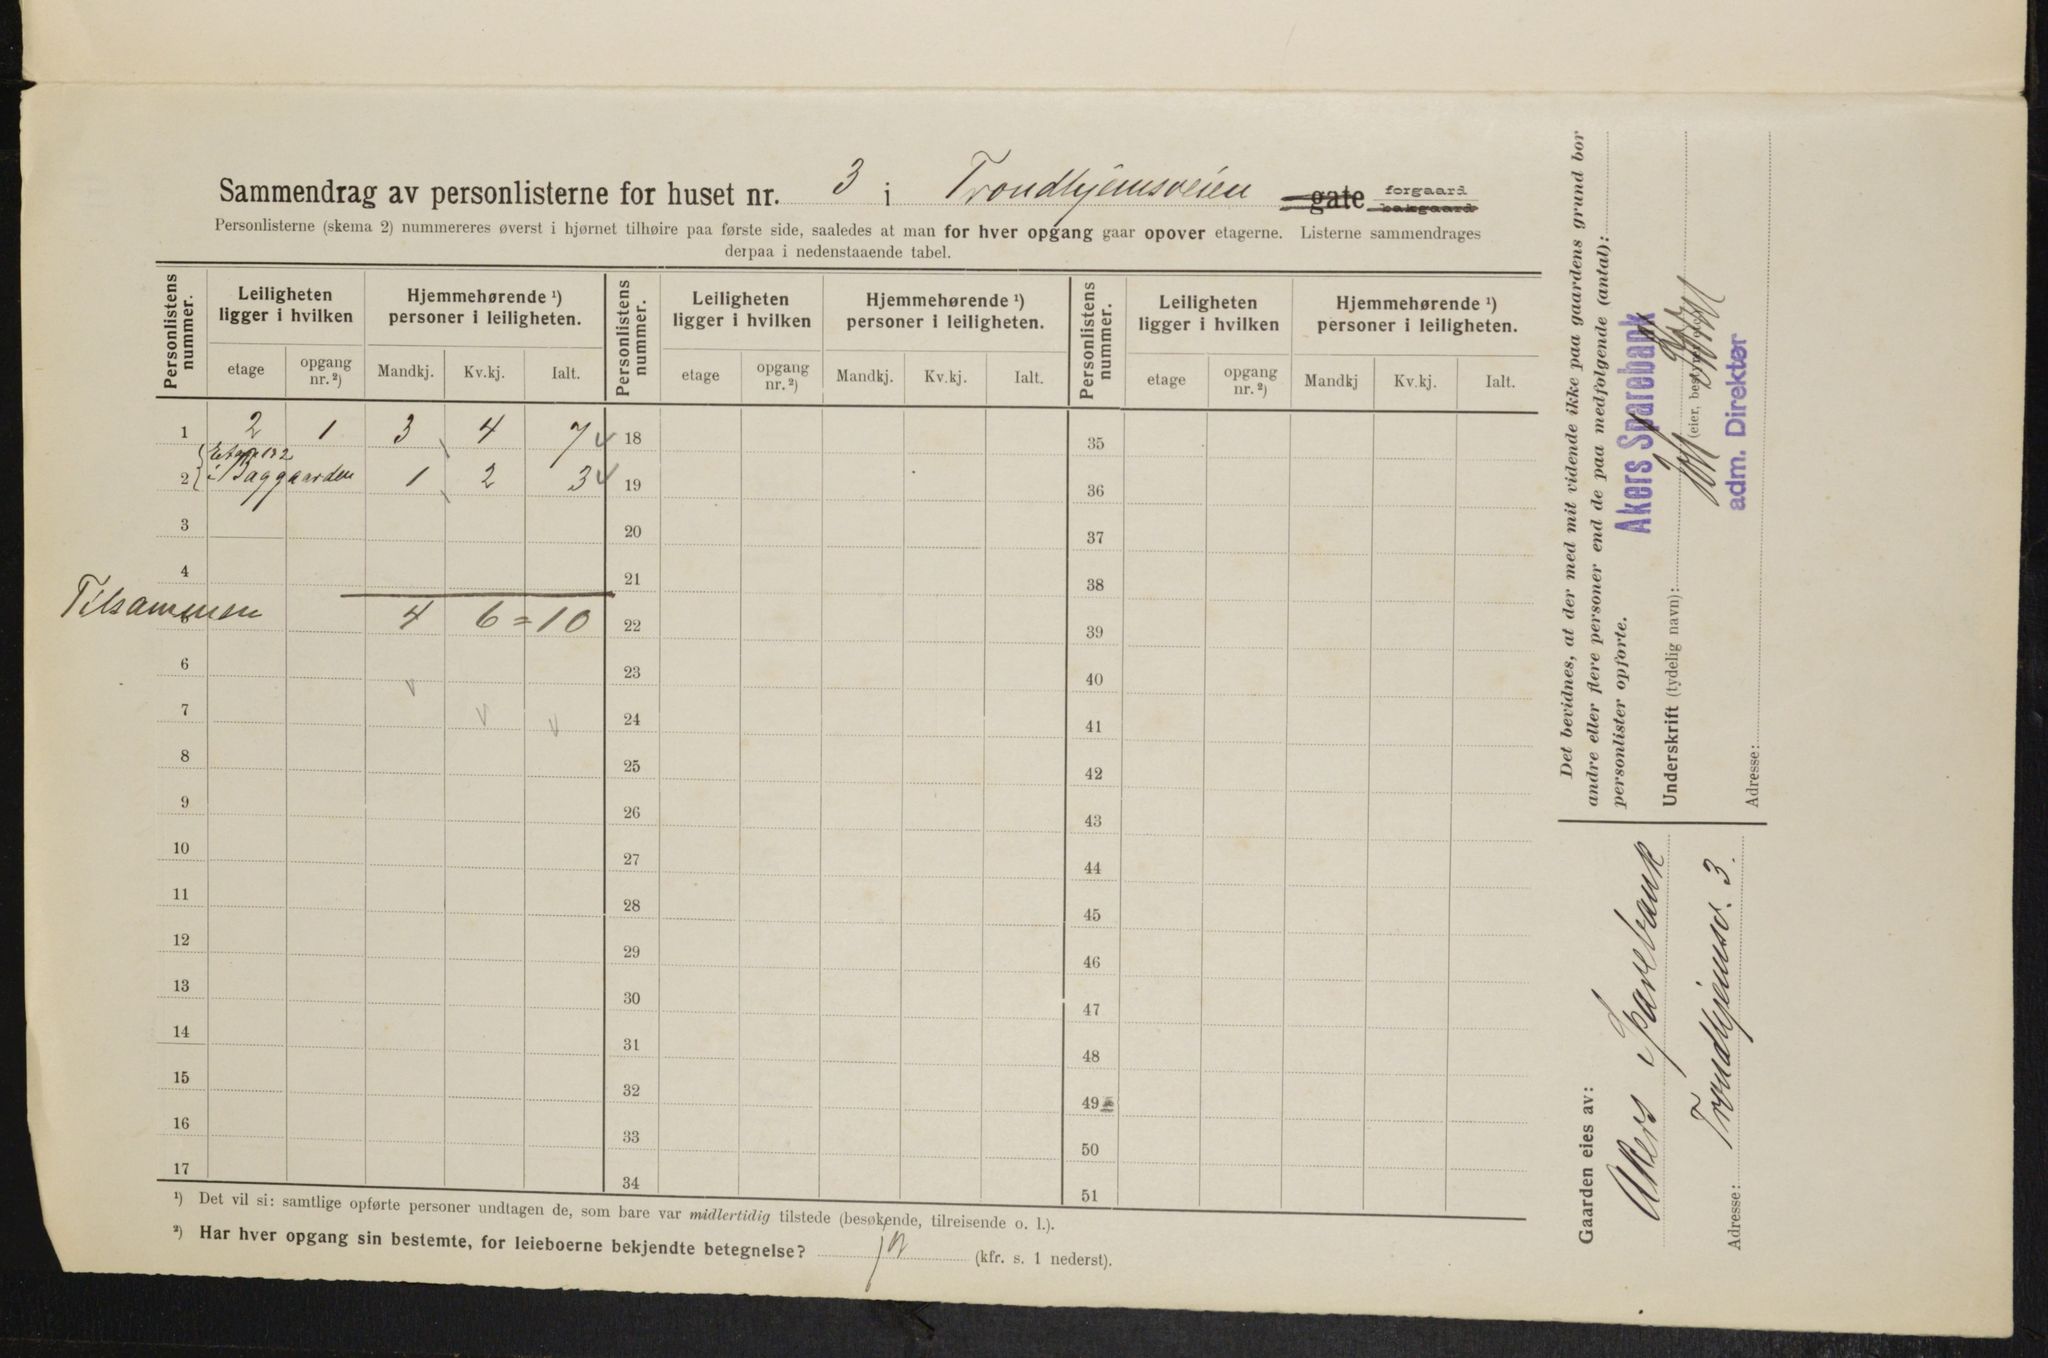 Sammendrag av personlisterne for huset nr. 3 i Trondhjemsveien gate forgaard bakgaard
Personlisterne (skema 2) nummereres øverst i hjørnet tilhøire paa første side, saaledes at man for hver opgang gaar opover etagerne. Listerne sammendrages
derpaa i nedenstaaende tabel.
Personlistens nummer. Leiligheten ligger i hvilken Hjemmehørende ¹) personer i leiligheten. Personlistens nummer. Leiligheten ligger i hvilken Hjemmehørende ¹) personer i leiligheten. Personlistens nummer. Leiligheten ligger i hvilken Hjemmehørende ¹) personer i leiligheten.
etage opgang nr. ²) Mandkj. Kv.kj. Ialt. etage opgang nr. ²) Mandkj. Kv.kj. Ialt. etage opgang nr. ²) Mandkj Kv.kj. Ialt.
1 2 1 3 4 7 18 35
2 Etage 1 & 2 i Baggaarden 1 2 3 19 36
3 20 37
4 21 38
Tilsammen 5 4 6 = 10 22 39
6 23 40
7 24 41
8 25 42
9 26 43
10 27 44
11 28 45
12 29 46
13 30 47
14 31 48
15 32 49
16 33 50
17 34 51
¹) Det vil si: samtlige opførte personer undtagen de, som bare var midlertidig tilstede (besøkende, tilreisende o. l.).
²) Har hver opgang sin bestemte, for leieboerne bekjendte betegnelse? ja (kfr. s. 1 nederst).
Det bevidnes, at der med mit vidende ikke paa gaardens grund bor
andre eller flere personer end de paa medfølgende (antal):
personlister opførte.
Akers Sparebank
Underskrift (tydelig navn):
(eier, bestyrer
adm. Direktør
Adresse:
Gaarden eies av:
Akers Sparebank
Adresse: Trondhjemsv. 3.